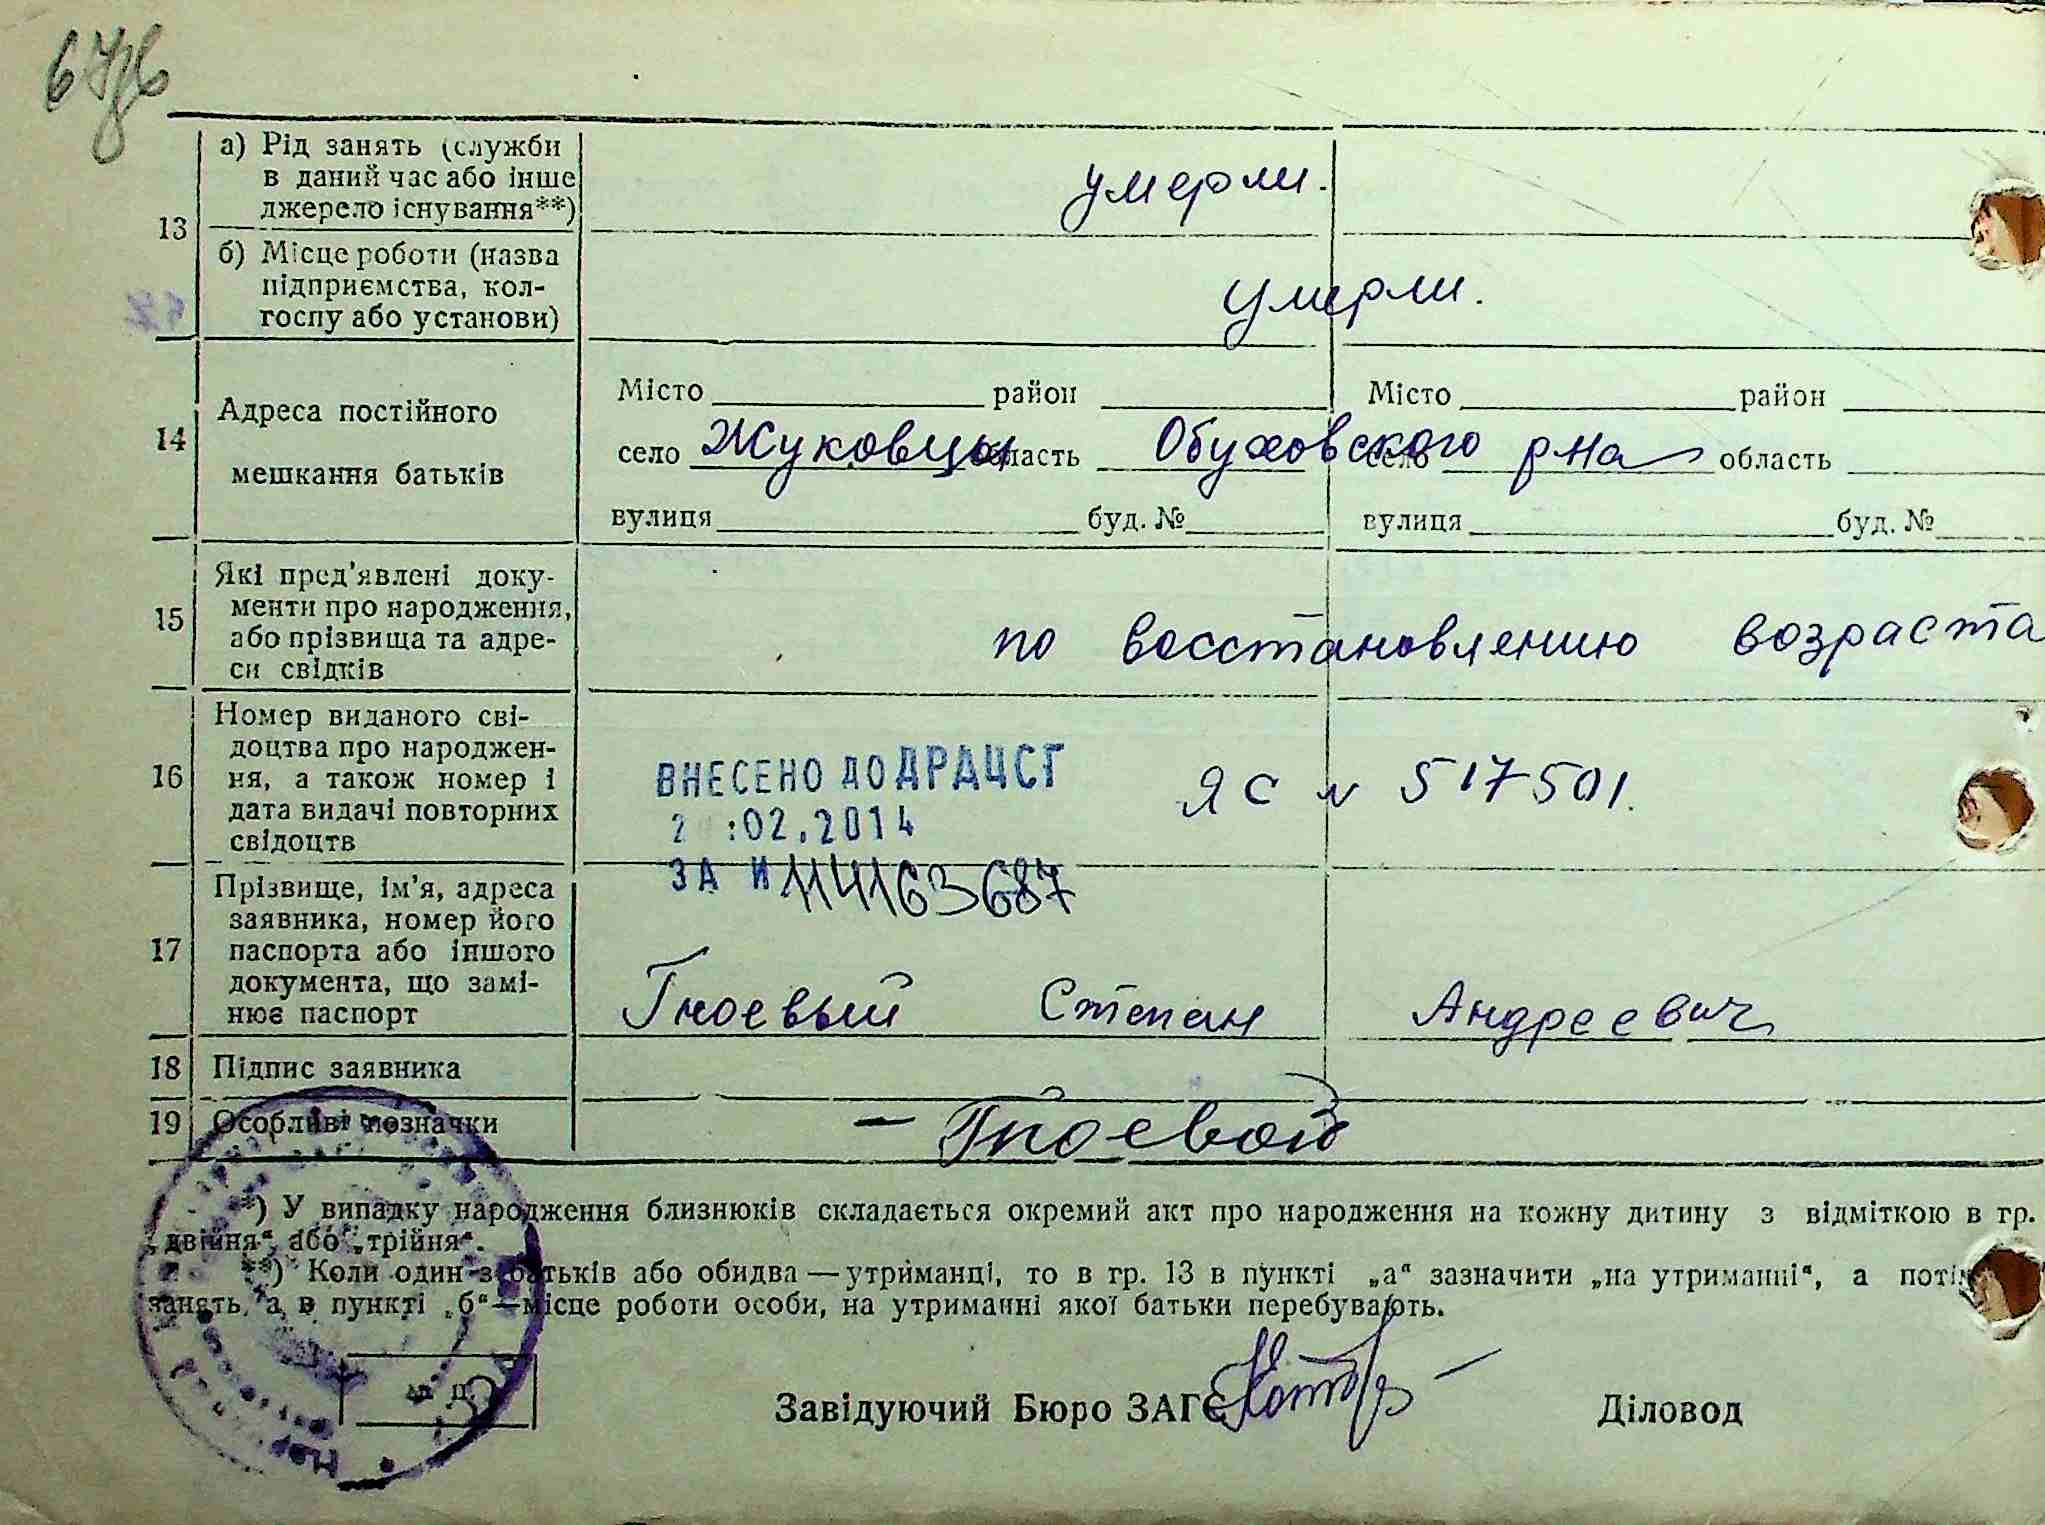 13
а) Рід занять (служби
в даний час або інше
джерело існування**)
умерли.
б) Місце роботи (назва
підприємства, кол-
госпу або установи)
умерли.
14
Адреса постійного
мешкання батьків
Місто район Місто район
село Жуковцы область Обуховского р-на село область
вулиця буд. № вулиця буд. №
15
Які пред'явлені доку-
менти про народження,
або прізвища та адре-
си свідків
по восстановлению возраста
16
Номер виданого сві-
доцтва про народжен-
ня, а також номер і
дата видачі повторних
свідоцтв
ВНЕСЕНО ДО ДРАЦСГ
:02.2014
ЗА №114163687
ЯС № 517501.
17
Прізвище, ім'я, адреса
заявника, номер його
паспорта або іншого
документа, що замі-
нює паспорт
Гноевый Степан Андреевич
18 Підпис заявника
19 Особливі позначки
— Гноевой
*) У випадку народження близнюків складається окремий акт про народження на кожну дитину з відміткою в гр.
„двійня“ або „трійня“.
**) Коли один з батьків або обидва — утриманці, то в гр. 13 в пункті „а“ зазначити „на утриманні“, а
занять, а в пункті „б“—місце роботи особи, на утриманні якої батьки перебувають.
М. П.
Завідуючий Бюро ЗАГС Діловод